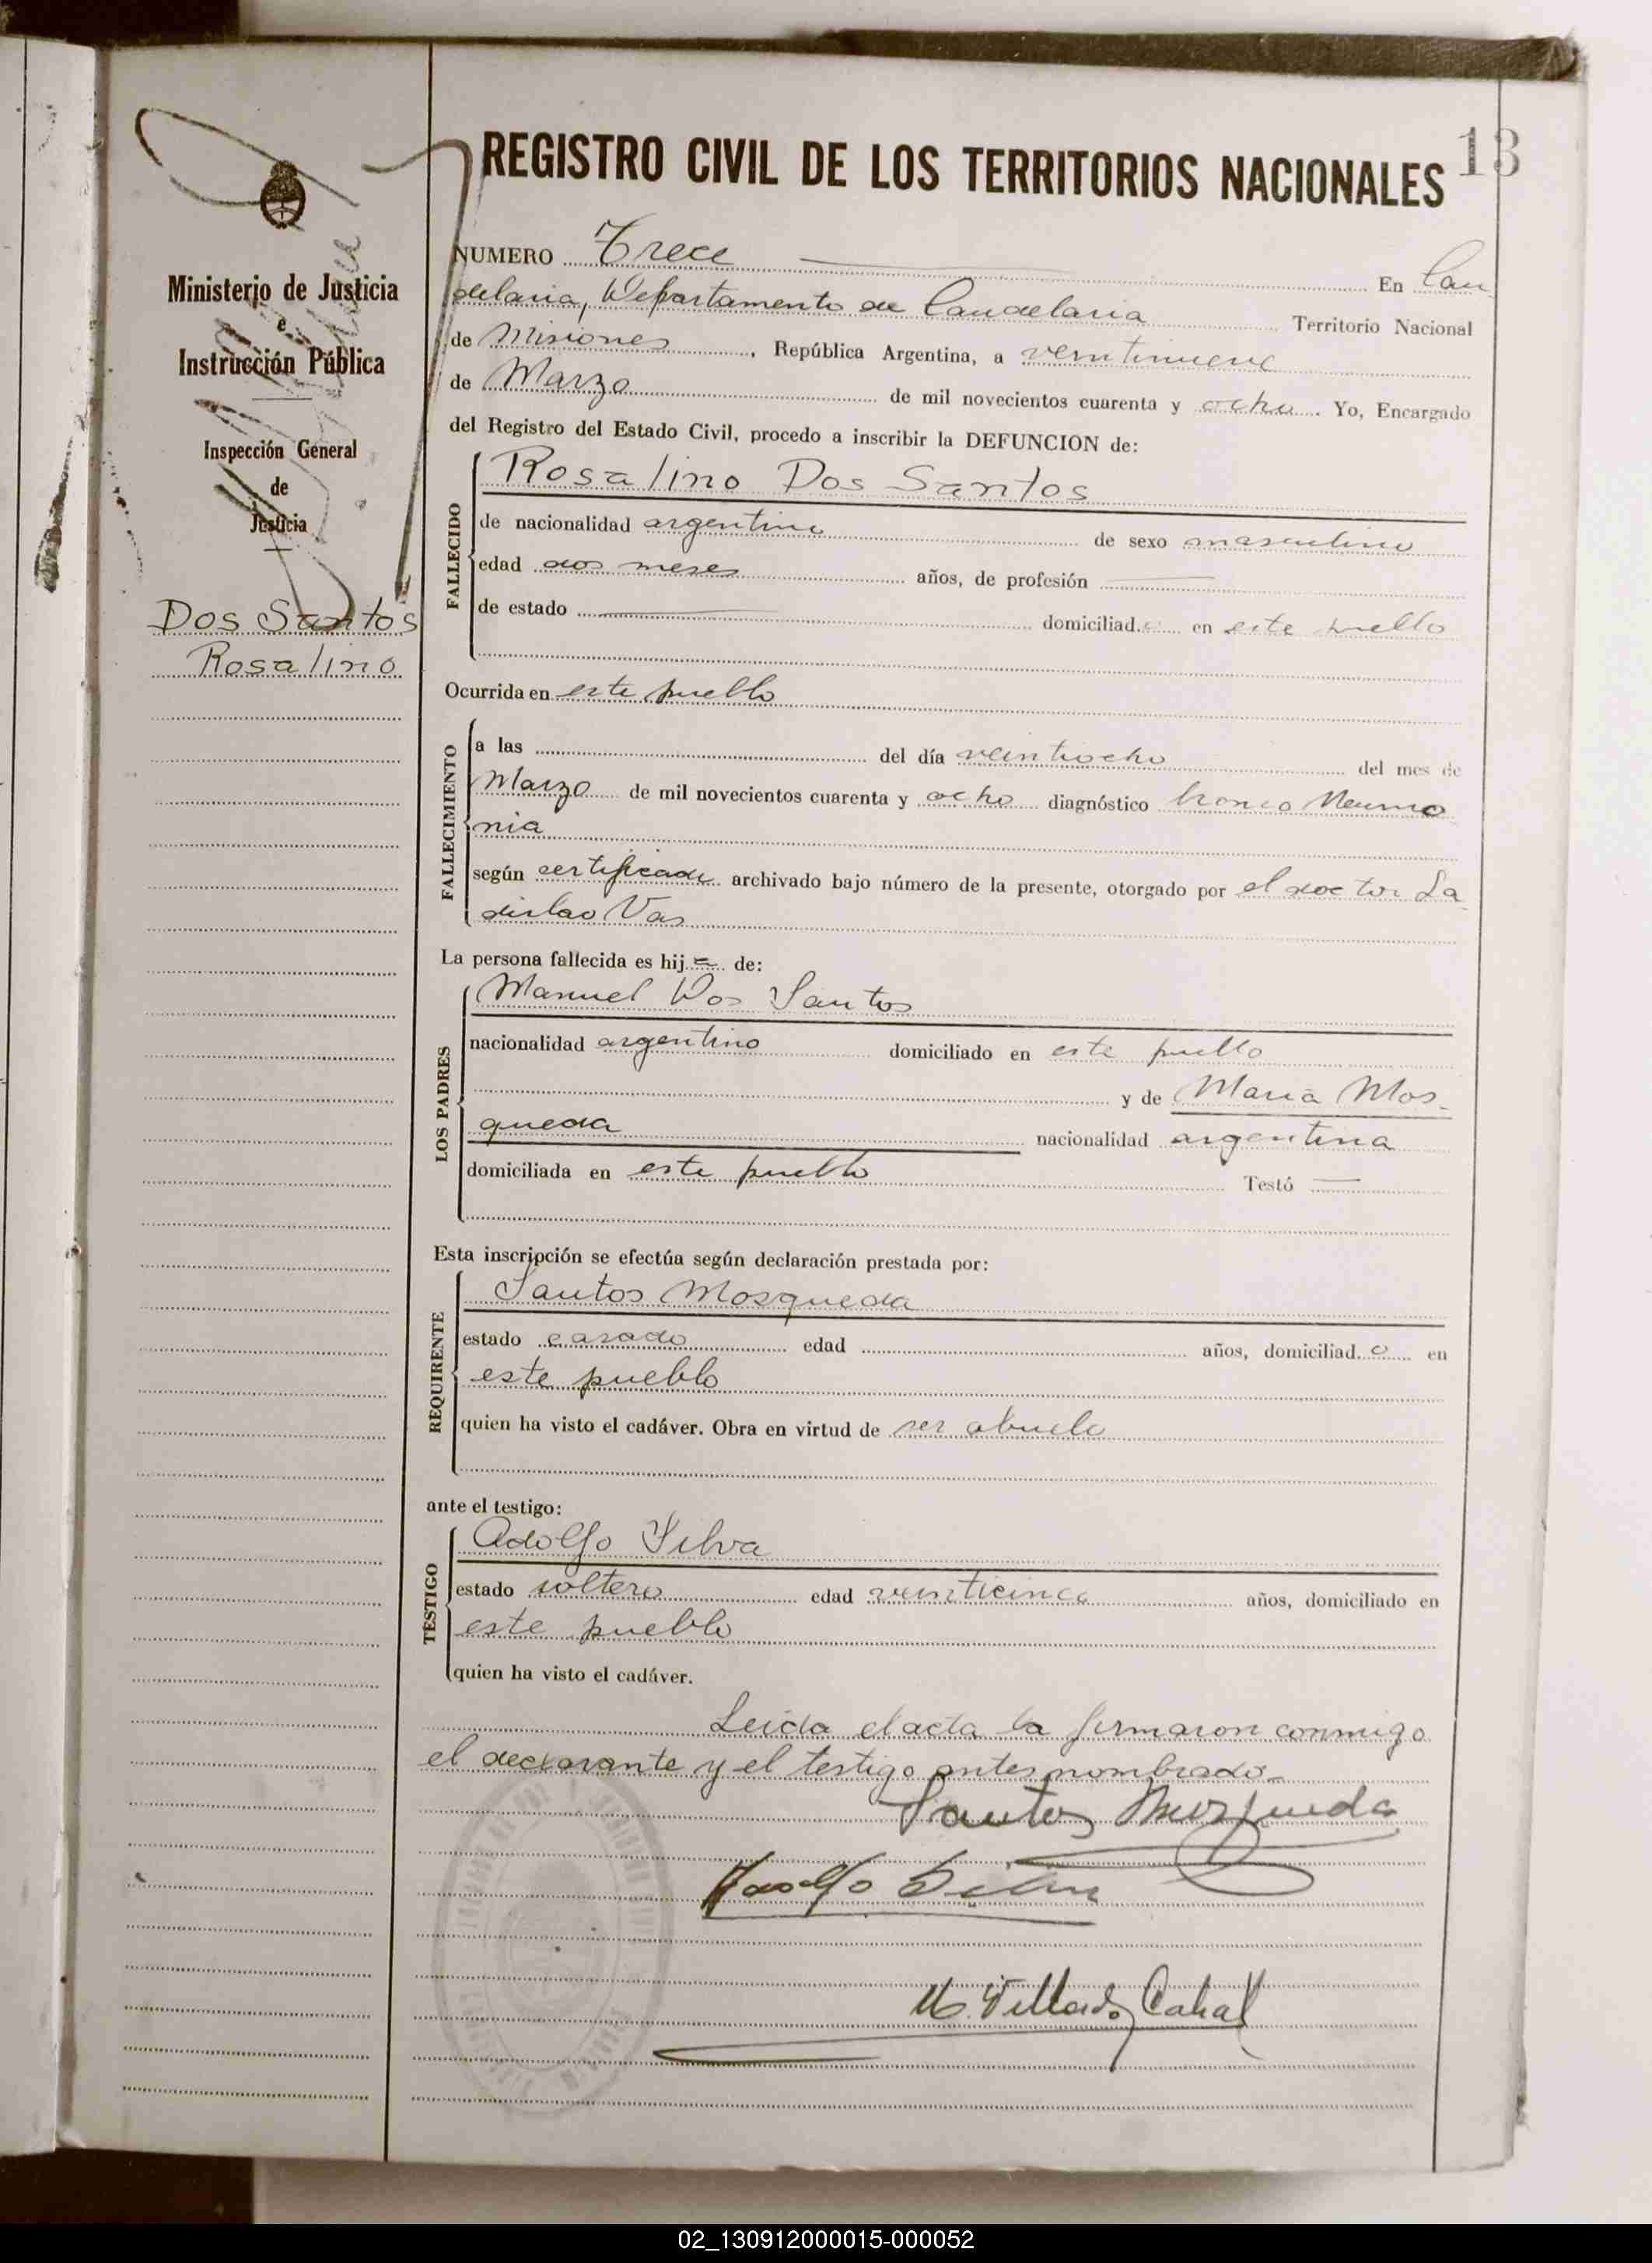 REGISTRO CIVIL DE LOS TERRITORIOS NACIONALES
13
Ministerio de Justicia
e
Instrucción Pública
Inspección General
de
Justicia
Dos Santos
Rosalino
NUMERO Trece En Can
delaria, Departamento de Candelaria Territorio Nacional
de Misiones, República Argentina, a veintinueve
de Marzo de mil novecientos cuarenta y ocho. Yo, Encargado
del Registro del Estado Civil, procedo a inscribir la DEFUNCION de:
FALLECIDO
Rosalino Dos Santos
de nacionalidad argentino de sexo masculino
edad dos meses años, de profesión
de estado domiciliado en este pueblo
Ocurrida en este pueblo
FALLECIMIENTO
a las del día veintiocho del mes de
Marzo de mil novecientos cuarenta y ocho diagnóstico bronco Neumo
nia
según certificado archivado bajo número de la presente, otorgado por el doctor La
dislao Vas
La persona fallecida es hijo de:
LOS PADRES
Manuel Dos Santos
nacionalidad argentino domiciliado en este pueblo
y de Maria Mos-
queda nacionalidad argentina
domiciliada en este pueblo Testó
Esta inscripción se efectúa según declaración prestada por:
REQUIRENTE
Santos Mosqueda
estado casado edad años, domiciliado en
este pueblo
quien ha visto el cadáver. Obra en virtud de ser abuelo
ante el testigo:
TESTIGO
Adolfo Silva
estado soltero edad veinticinco años, domiciliado en
este pueblo
quien ha visto el cadáver.
Leida el acta la firmaron conmigo
el declarante y el testigo antes nombrado-
Santos Mosqueda
Adolfo Silva
M. Villardo Cabal
02_130912000015-000052